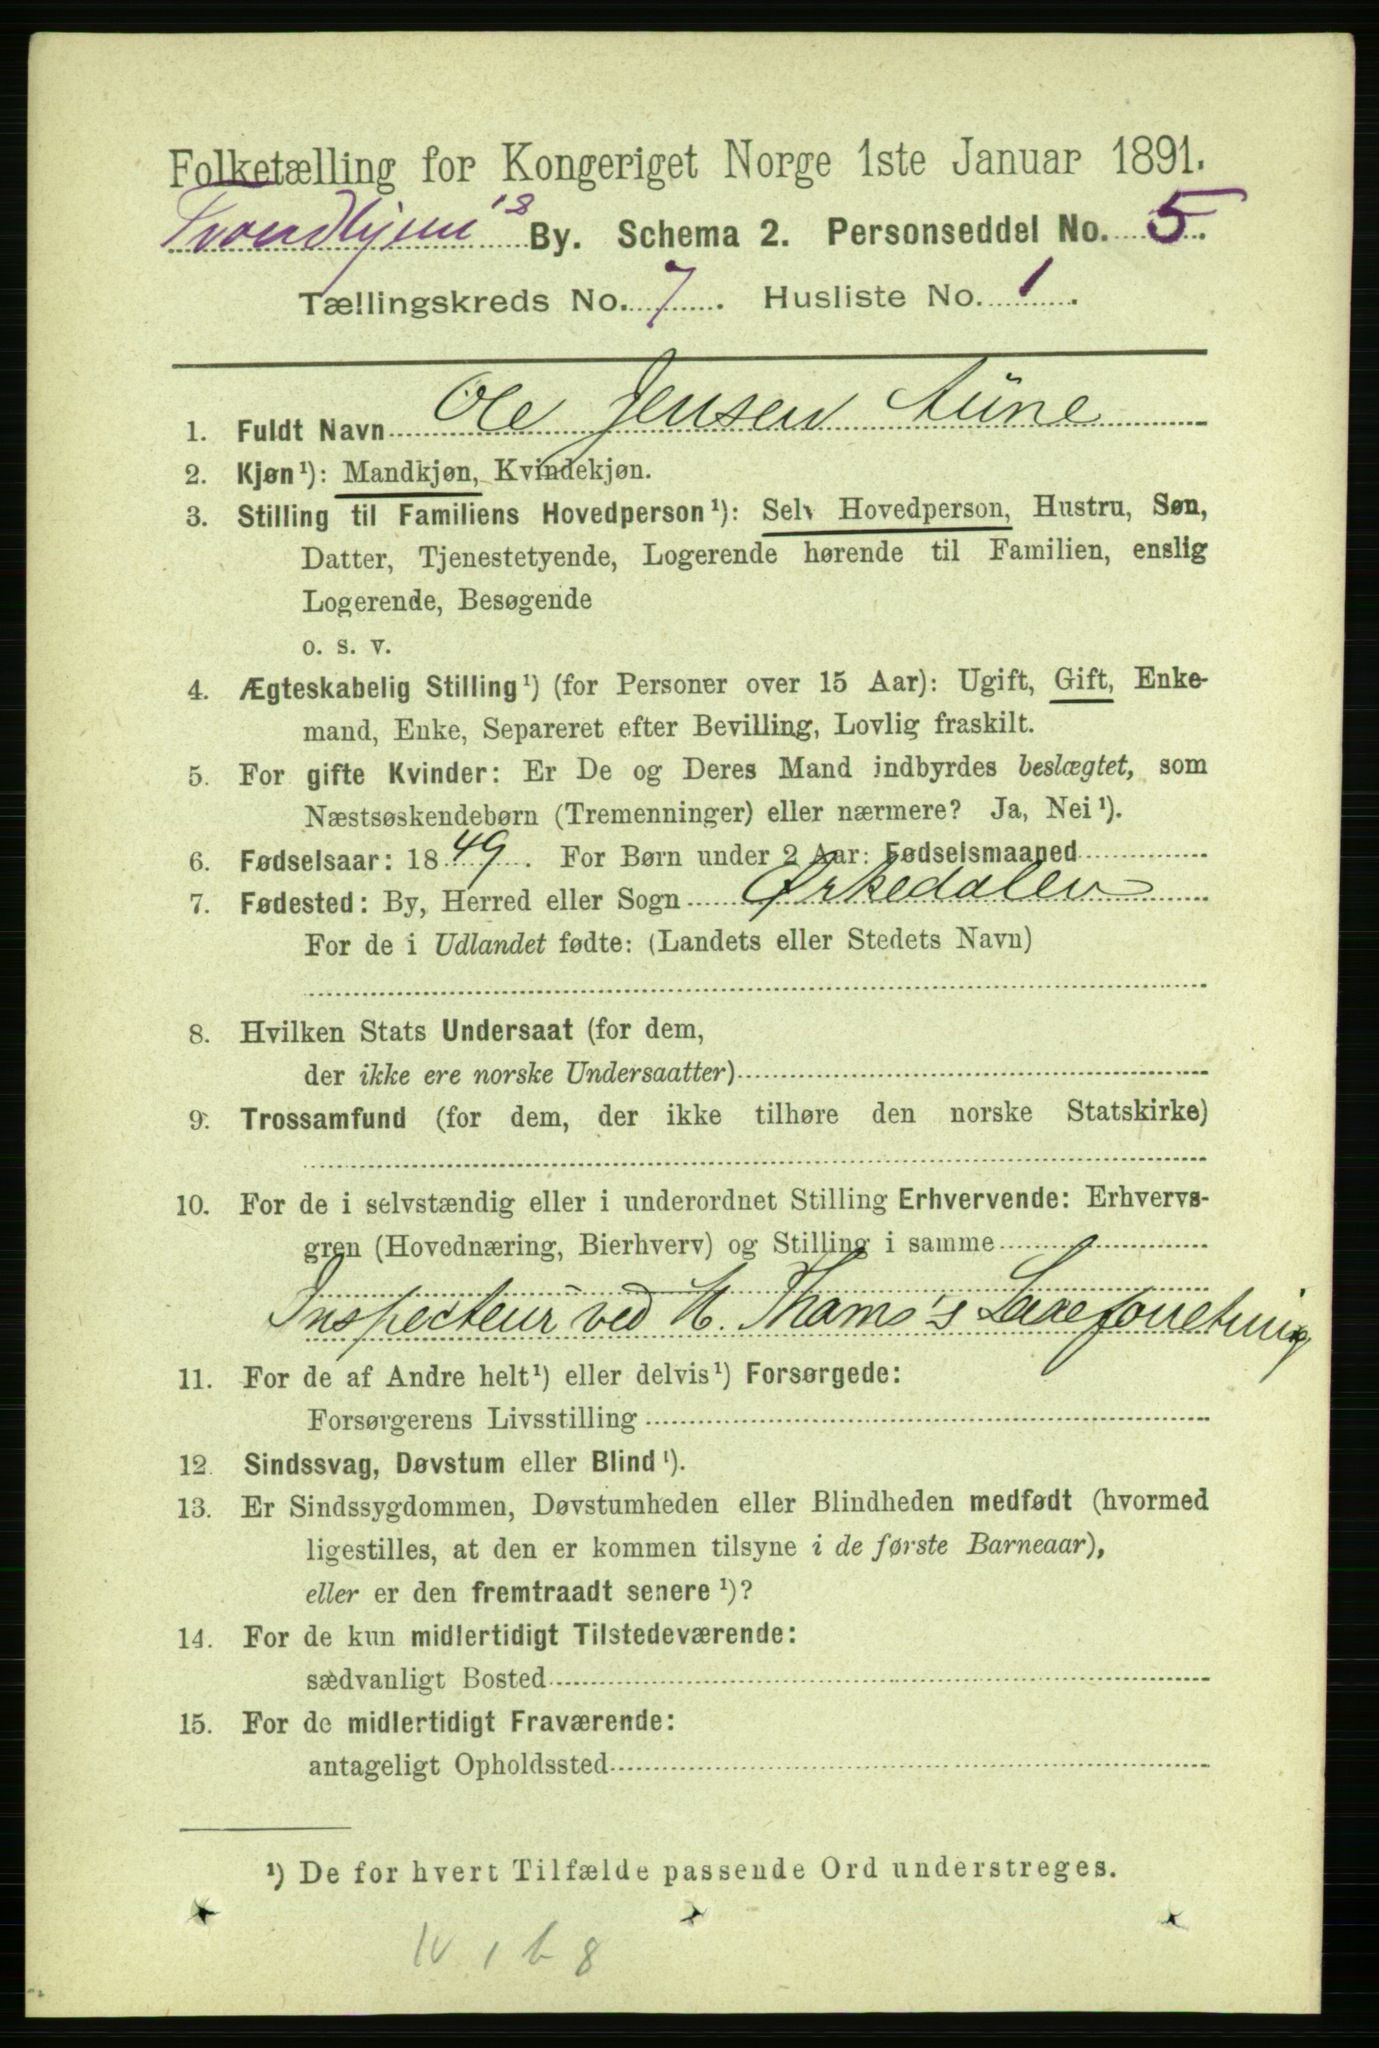 Folketælling for Kongeriget Norge 1ste Januar 1891.
Trondhjem's By. Schema 2. Personseddel No. 5.
Tællingskreds No. 7. Husliste No. 1.
1. Fuldt Navn Ole Jensen Aune
2. Kjøn¹): Mandkjøn, Kvindekjøn.
3. Stilling til Familiens Hovedperson¹): Selv Hovedperson, Hustru, Søn,
Datter, Tjenestetyende, Logerende hørende til Familien, enslig
Logerende, Besøgende
o. s. v.
4. Ægteskabelig Stilling¹) (for Personer over 15 Aar): Ugift, Gift, Enke-
mand, Enke, Separeret efter Bevilling, Lovlig fraskilt.
5. For gifte Kvinder: Er De og Deres Mand indbyrdes beslægtet, som
Næstsøskendebørn (Tremenninger) eller nærmere? Ja, Nei¹).
6. Fødselsaar: 1849. For Børn under 2 Aar: Fødselsmaaned
7. Fødested: By, Herred eller Sogn Ørkedalen
For de i Udlandet fødte: (Landets eller Stedets Navn)
8. Hvilken Stats Undersaat (for dem,
der ikke ere norske Undersaatter)
9. Trossamfund (for dem, der ikke tilhøre den norske Statskirke)
10. For de i selvstændig eller i underordnet Stilling Erhvervende: Erhvervs-
gren (Hovednæring, Bierhverv) og Stilling i samme
Inspecteur ved M. Thams's Laxeforretning
11. For de af Andre helt¹) eller delvis¹) Forsørgede:
Forsørgerens Livsstilling
12. Sindssvag, Døvstum eller Blind¹).
13. Er Sindssygdommen, Døvstumheden eller Blindheden medfødt (hvormed
ligestilles, at den er kommen tilsyne i de første Barneaar),
eller er den fremtraadt senere¹)?
14. For de kun midlertidigt Tilstedeværende:
sædvanligt Bosted
15. For de midlertidigt Fraværende:
antageligt Opholdssted
¹) De for hvert Tilfælde passende Ord understreges.